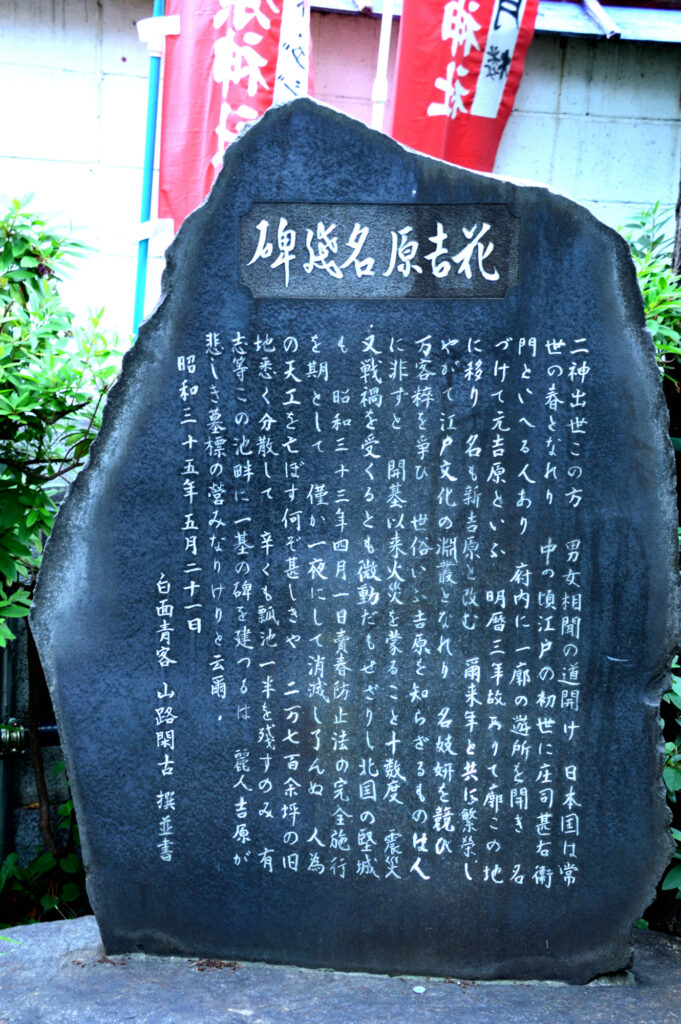 花吉原名残碑
二神出世この方　男女相聞の道開け　日本国は常
世の春となれり　中の頃江戸の初世に庄司甚右衛
門といへる人あり　府内に一廓の遊所を開き　名
づけて元吉原といふ　明暦三年故ありて廓この地
に移り　名も新吉原と改む　爾来年と共に繁栄し
やがて江戸文化の淵叢となれり　名妓妍を競ひ
万客粋を争ひ　世俗いふ吉原を知らざるものは人
に非ずと　開基以来火災を蒙ること十数度　震災
又戦禍を受くるとも微動だもせざりし北国の堅城
も　昭和三十三年四月一日賣春防止法の完全施行
を期として　僅か一夜にして消滅し了んぬ　人為
の天工を亡ぼす何ぞ甚しきや　二万七百余坪の旧
地悉く分散して　辛くも瓢池一半を残すのみ　有
志等この池畔に一基の碑を建つるは　麗人吉原が
悲しき墓標の営みなりけりと云爾．
昭和三十五年五月二十一日
白面青客　山路閑古　撰並書
原神社
神社